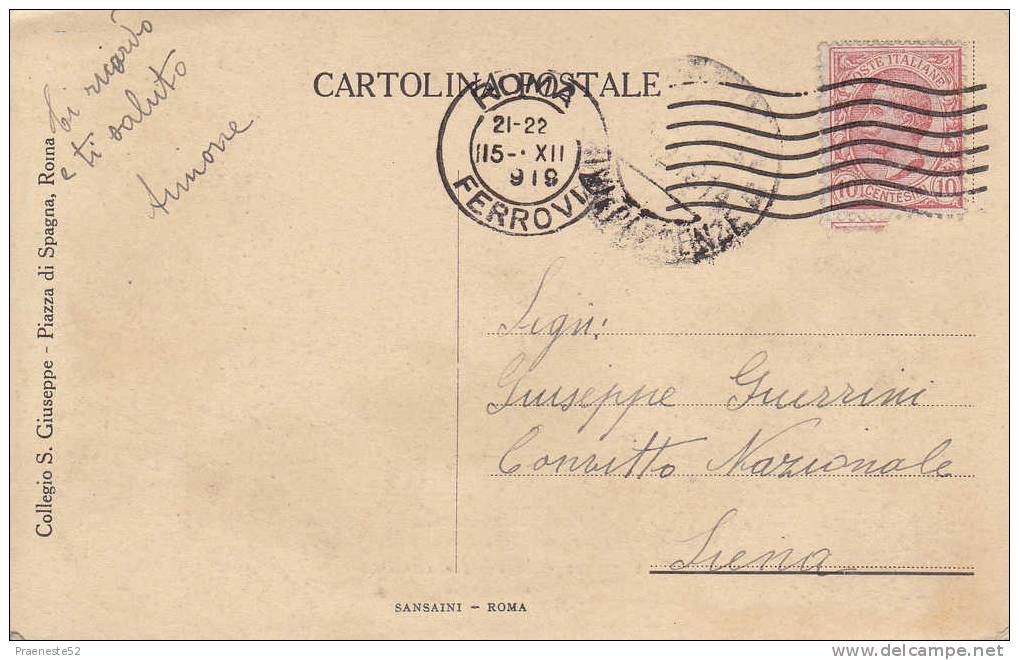 CARTOLINA POSTALE
ROMA
21-22
15-·XII
919
FERROVIA
POSTE ITALIANE
10 CENTESIMI 10
e ti saluto
Collegio S. Giuseppe - Piazza di Spagna, Roma
Sign:
Giuseppe Guerrini
Convitto Nazionale
Siena
SANSAINI - ROMA
Praeneste52
www.delcampe.net